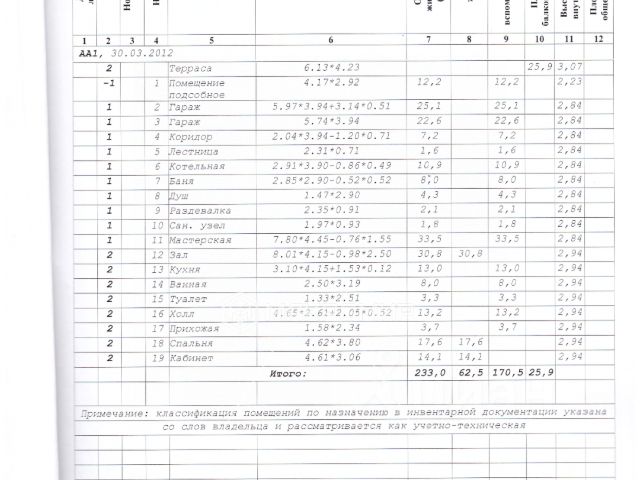 Но
Н
вспом
балкон
общ
1 2 3 4 5 6 7 8 9 10 11 12
АА1, 30.03.2012
2 Терраса 6.13*4.23 25,9 3,07
-1 1 Помещение подсобное 4.17*2.92 12,2 12,2 2,23
1 2 Гараж 5.97*3.94+3.14*0.51 25,1 25,1 2,84
1 3 Гараж 5.74*3.94 22,6 22,6 2,84
1 4 Коридор 2.04*3.94-1.20*0.71 7,2 7,2 2,84
1 5 Лестница 2.31*0.71 1,6 1,6 2,84
1 6 Котельная 2.91*3.90-0.86*0.49 10,9 10,9 2,84
1 7 Баня 2.85*2.90-0.52*0.52 8,0 8,0 2,84
1 8 Душ 1.47*2.90 4,3 4,3 2,84
1 9 Раздевалка 2.35*0.91 2,1 2,1 2,84
1 10 Сан. узел 1.97*0.93 1,8 1,8 2,84
1 11 Мастерская 7.80*4.45-0.76*1.55 33,5 33,5 2,84
2 12 Зал 8.01*4.15-0.98*2.50 30,8 30,8 2,94
2 13 Кухня 3.10*4.15+1.53*0.12 13,0 13,0 2,94
2 14 Ванная 2.50*3.19 8,0 8,0 2,94
2 15 Туалет 1.33*2.51 3,3 3,3 2,94
2 16 Холл 4.65*2.61+2.05*0.52 13,2 13,2 2,94
2 17 Прихожая 1.58*2.34 3,7 3,7 2,94
2 18 Спальня 4.62*3.80 17,6 17,6 2,94
2 19 Кабинет 4.61*3.06 14,1 14,1 2,94
Итого: 233,0 62,5 170,5 25,9
Примечание: классификация помещений по назначению в инвентарной документации указана
со слов владельца и рассматривается как учетно-техническая